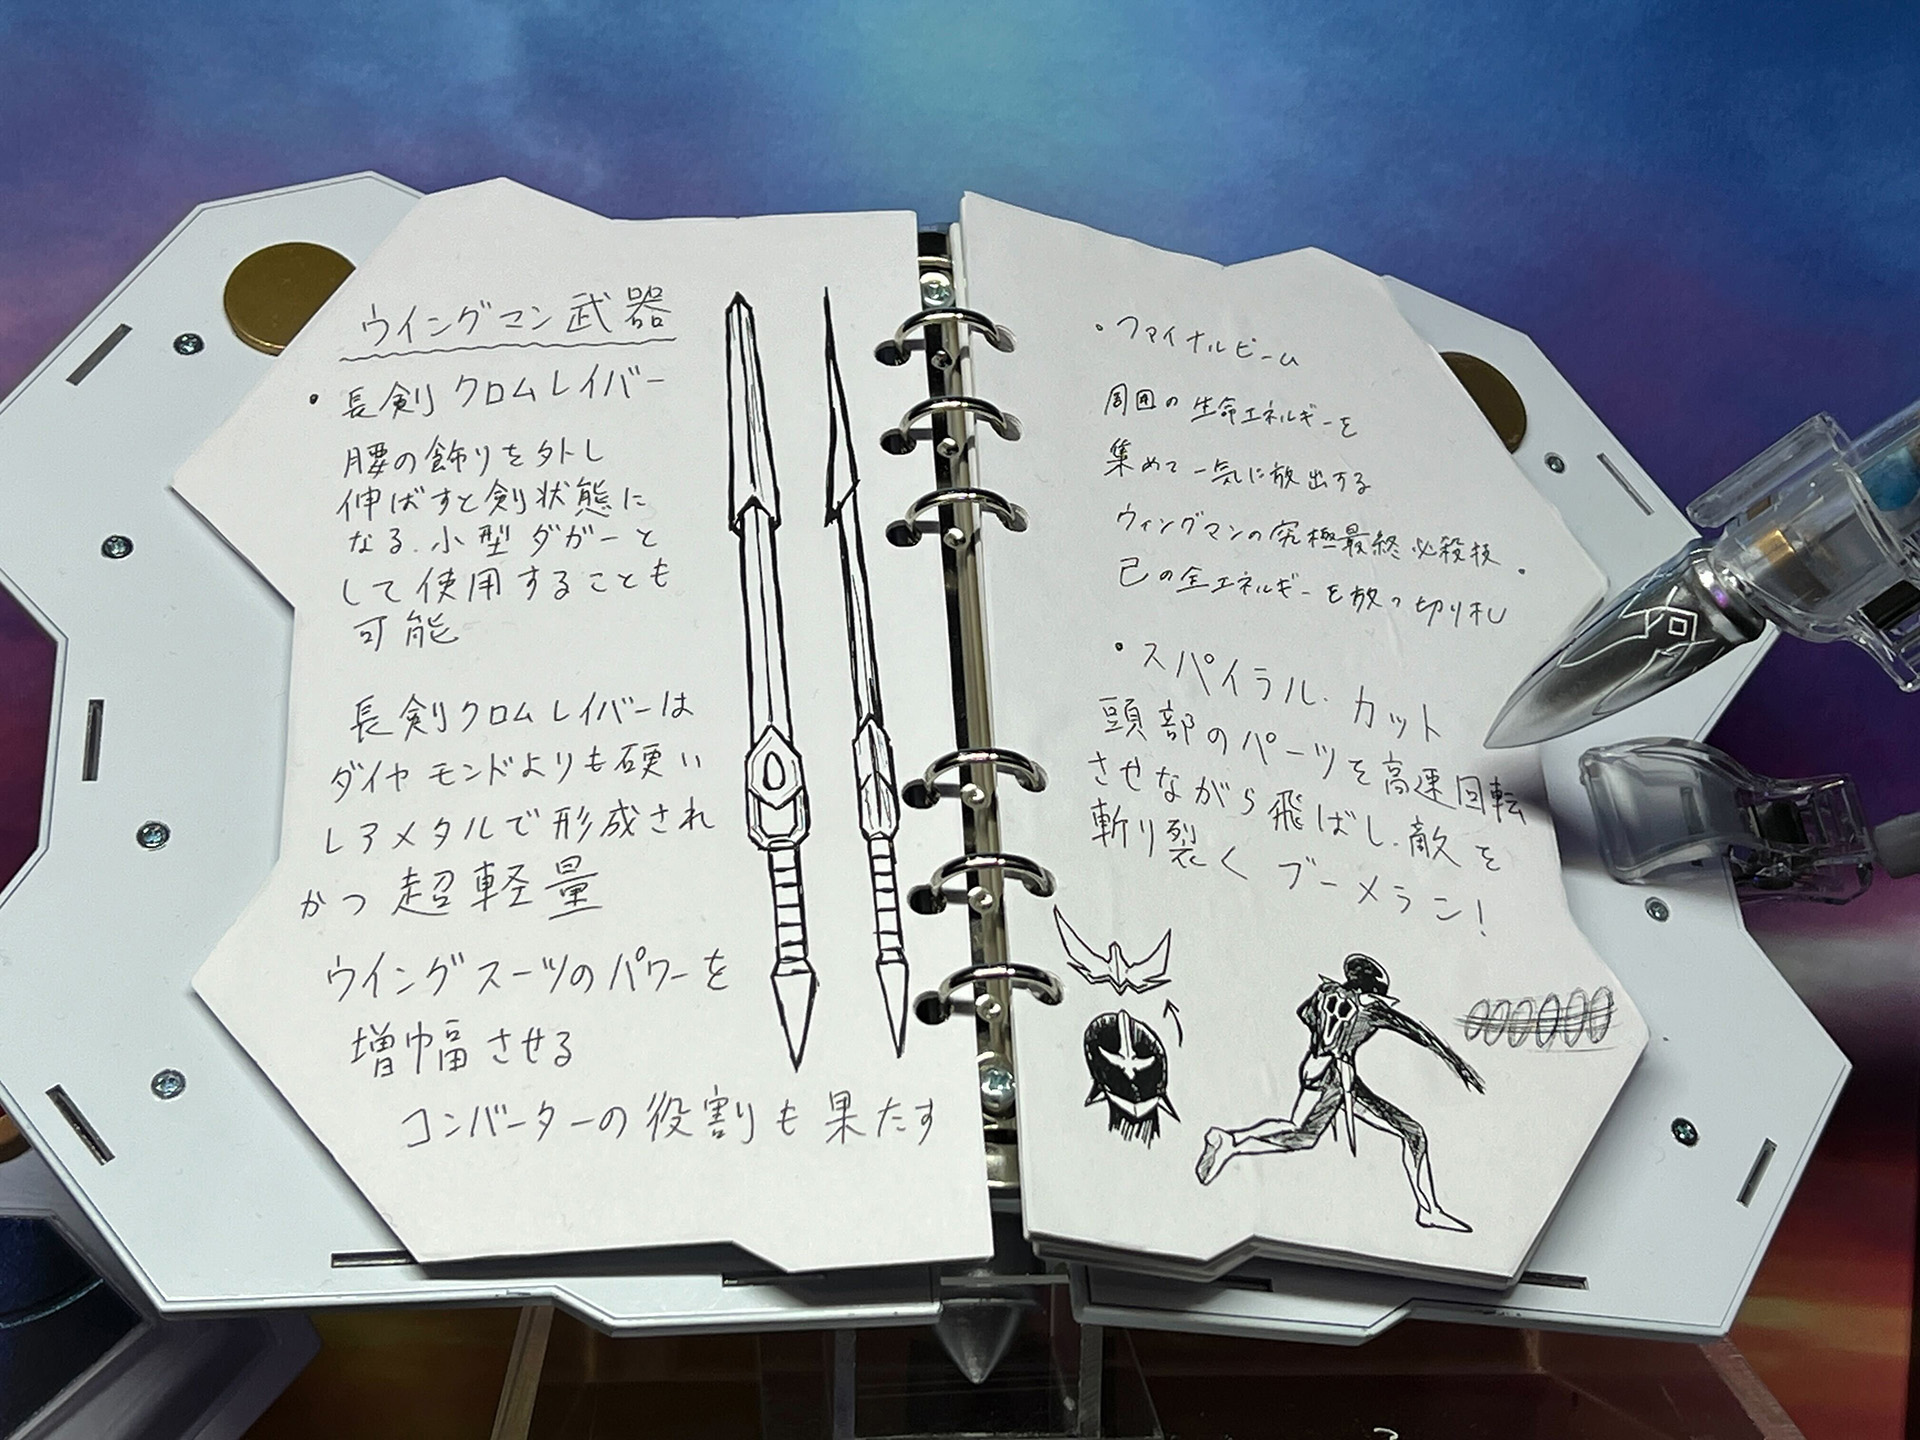 ウイングマン武器
・長剣クロムレイバー
腰の飾りを外し
伸ばすと剣状態に
なる.小型ダガーと
して使用することも
可能
長剣クロムレイバーは
ダイヤモンドよりも硬い
レアメタルで形成され
かつ超軽量
ウイングスーツのパワーを
増幅させる
コンバーターの役割も果たす
・ファイナルビーム
周囲の生命エネルギーを
集めて一気に放出する
ウィングマンの究極最終必殺技.
己の全エネルギーを放つ切り札
・スパイラル.カット
頭部のパーツを高速回転
させながら飛ばし.敵を
斬り裂くブーメラン!